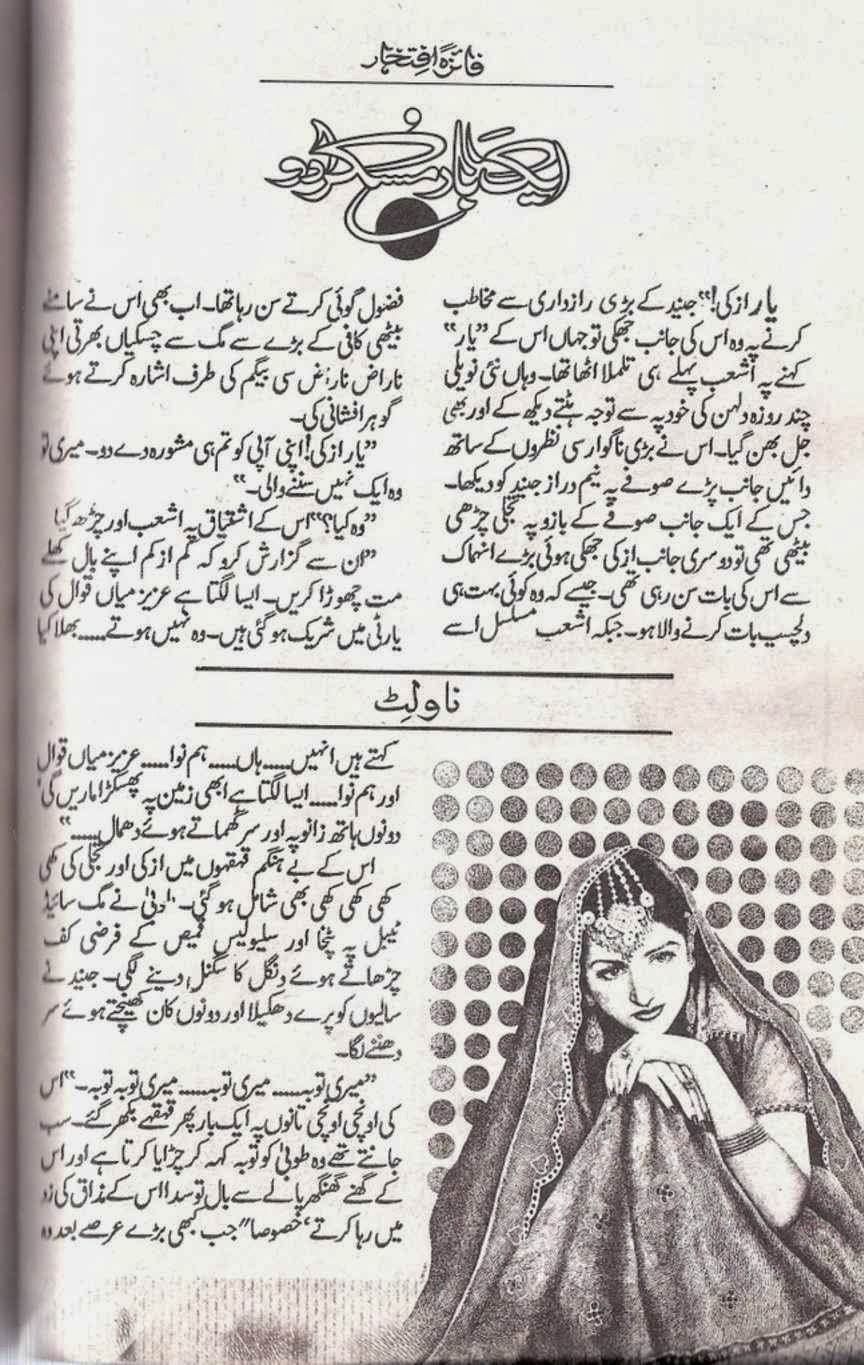 فائزہ افتخار
ایک بار مسکرا دو
یار ازکی!“ جنید کے بڑی رازداری سے مخاطب
کرنے پہ وہ اس کی جانب جھکی تو جہاں اس کے ”یار“
کہنے پہ اشعب پہلے ہی تلملا اٹھا تھا۔ وہاں نئی نویلی
چند روزہ دلہن کی خود پہ سے توجہ ہٹتے دیکھ کے اور بھی
جل بھن گیا۔ اس نے بڑی ناگوار سی نظروں کے ساتھ
دائیں جانب پڑے صوفے پہ نیم دراز جنید کو دیکھا۔
جس کے ایک جانب صوفے کے بازو پہ تجلی چڑھی
بیٹھی تھی تو دوسری جانب ازکی جھکی ہوئی بڑے انہماک
سے اس کی بات سن رہی تھی۔ جیسے کہ وہ کوئی بہت ہی
دلچسپ بات کرنے والا ہو۔ جبکہ اشعب مسلسل اسے
فضول گوئی کرتے سن رہا تھا۔ اب بھی اس نے سامنے
بیٹھی کافی کے بڑے سے مگ سے چسکیاں بھرتی اپنی
ناراض ناراض سی بیگم کی طرف اشارہ کرتے ہوئے
گوہر افشانی کی۔
”یار ازکی! اپنی آپی کو تم ہی مشورہ دے دو۔ میری تو
وہ ایک نہیں سننے والی۔“
”وہ کیا؟“ اس کے اشتیاق پہ اشعب اور چڑھ گیا
”ان سے گزارش کرو کہ کم از کم اپنے بال کھلے
مت چھوڑا کریں۔ ایسا لگتا ہے عزیز میاں قوال کی
پارٹی میں شریک ہو گئی ہیں۔ وہ نہیں ہوتے..... بھلا کیا
ناولٹ
کہتے ہیں انہیں..... ہاں..... ہم نوا..... عزیز میاں قوال
اور ہم نوا..... ایسا لگتا ہے ابھی زمین پہ پھسکڑا ماریں گی‘
دونوں ہاتھ زانو پہ اور سر گھماتے ہوئے دھمال.....“
اس کے بے ہنگم قہقہوں میں ازکی اور تجلی کی کھی
کھی کھی کھی بھی شامل ہو گئی۔ طوبیٰ نے مگ سائیڈ
ٹیبل پہ پٹخا اور سلیولیس قمیص کے فرضی کف
چڑھاتے ہوئے دنگل کا سگنل دینے لگی۔ جنید نے
سالیوں کو پرے دھکیلا اور دونوں کان کھینچتے ہوئے سر
دھننے لگا۔
”میری توبہ..... میری توبہ..... میری توبہ توبہ۔“ اس
کی اونچی اونچی تانوں پہ ایک بار پھر قہقہے بکھر گئے۔ سب
جانتے تھے وہ طوبیٰ کو توبہ کہہ کر چڑایا کرتا ہے اور اس
کے گھنے گھنگھریالے سے بال تو سدا اس کے مذاق کی زد
میں رہا کرتے‘ خصوصا" جب کبھی بڑے عرصے بعد وہ